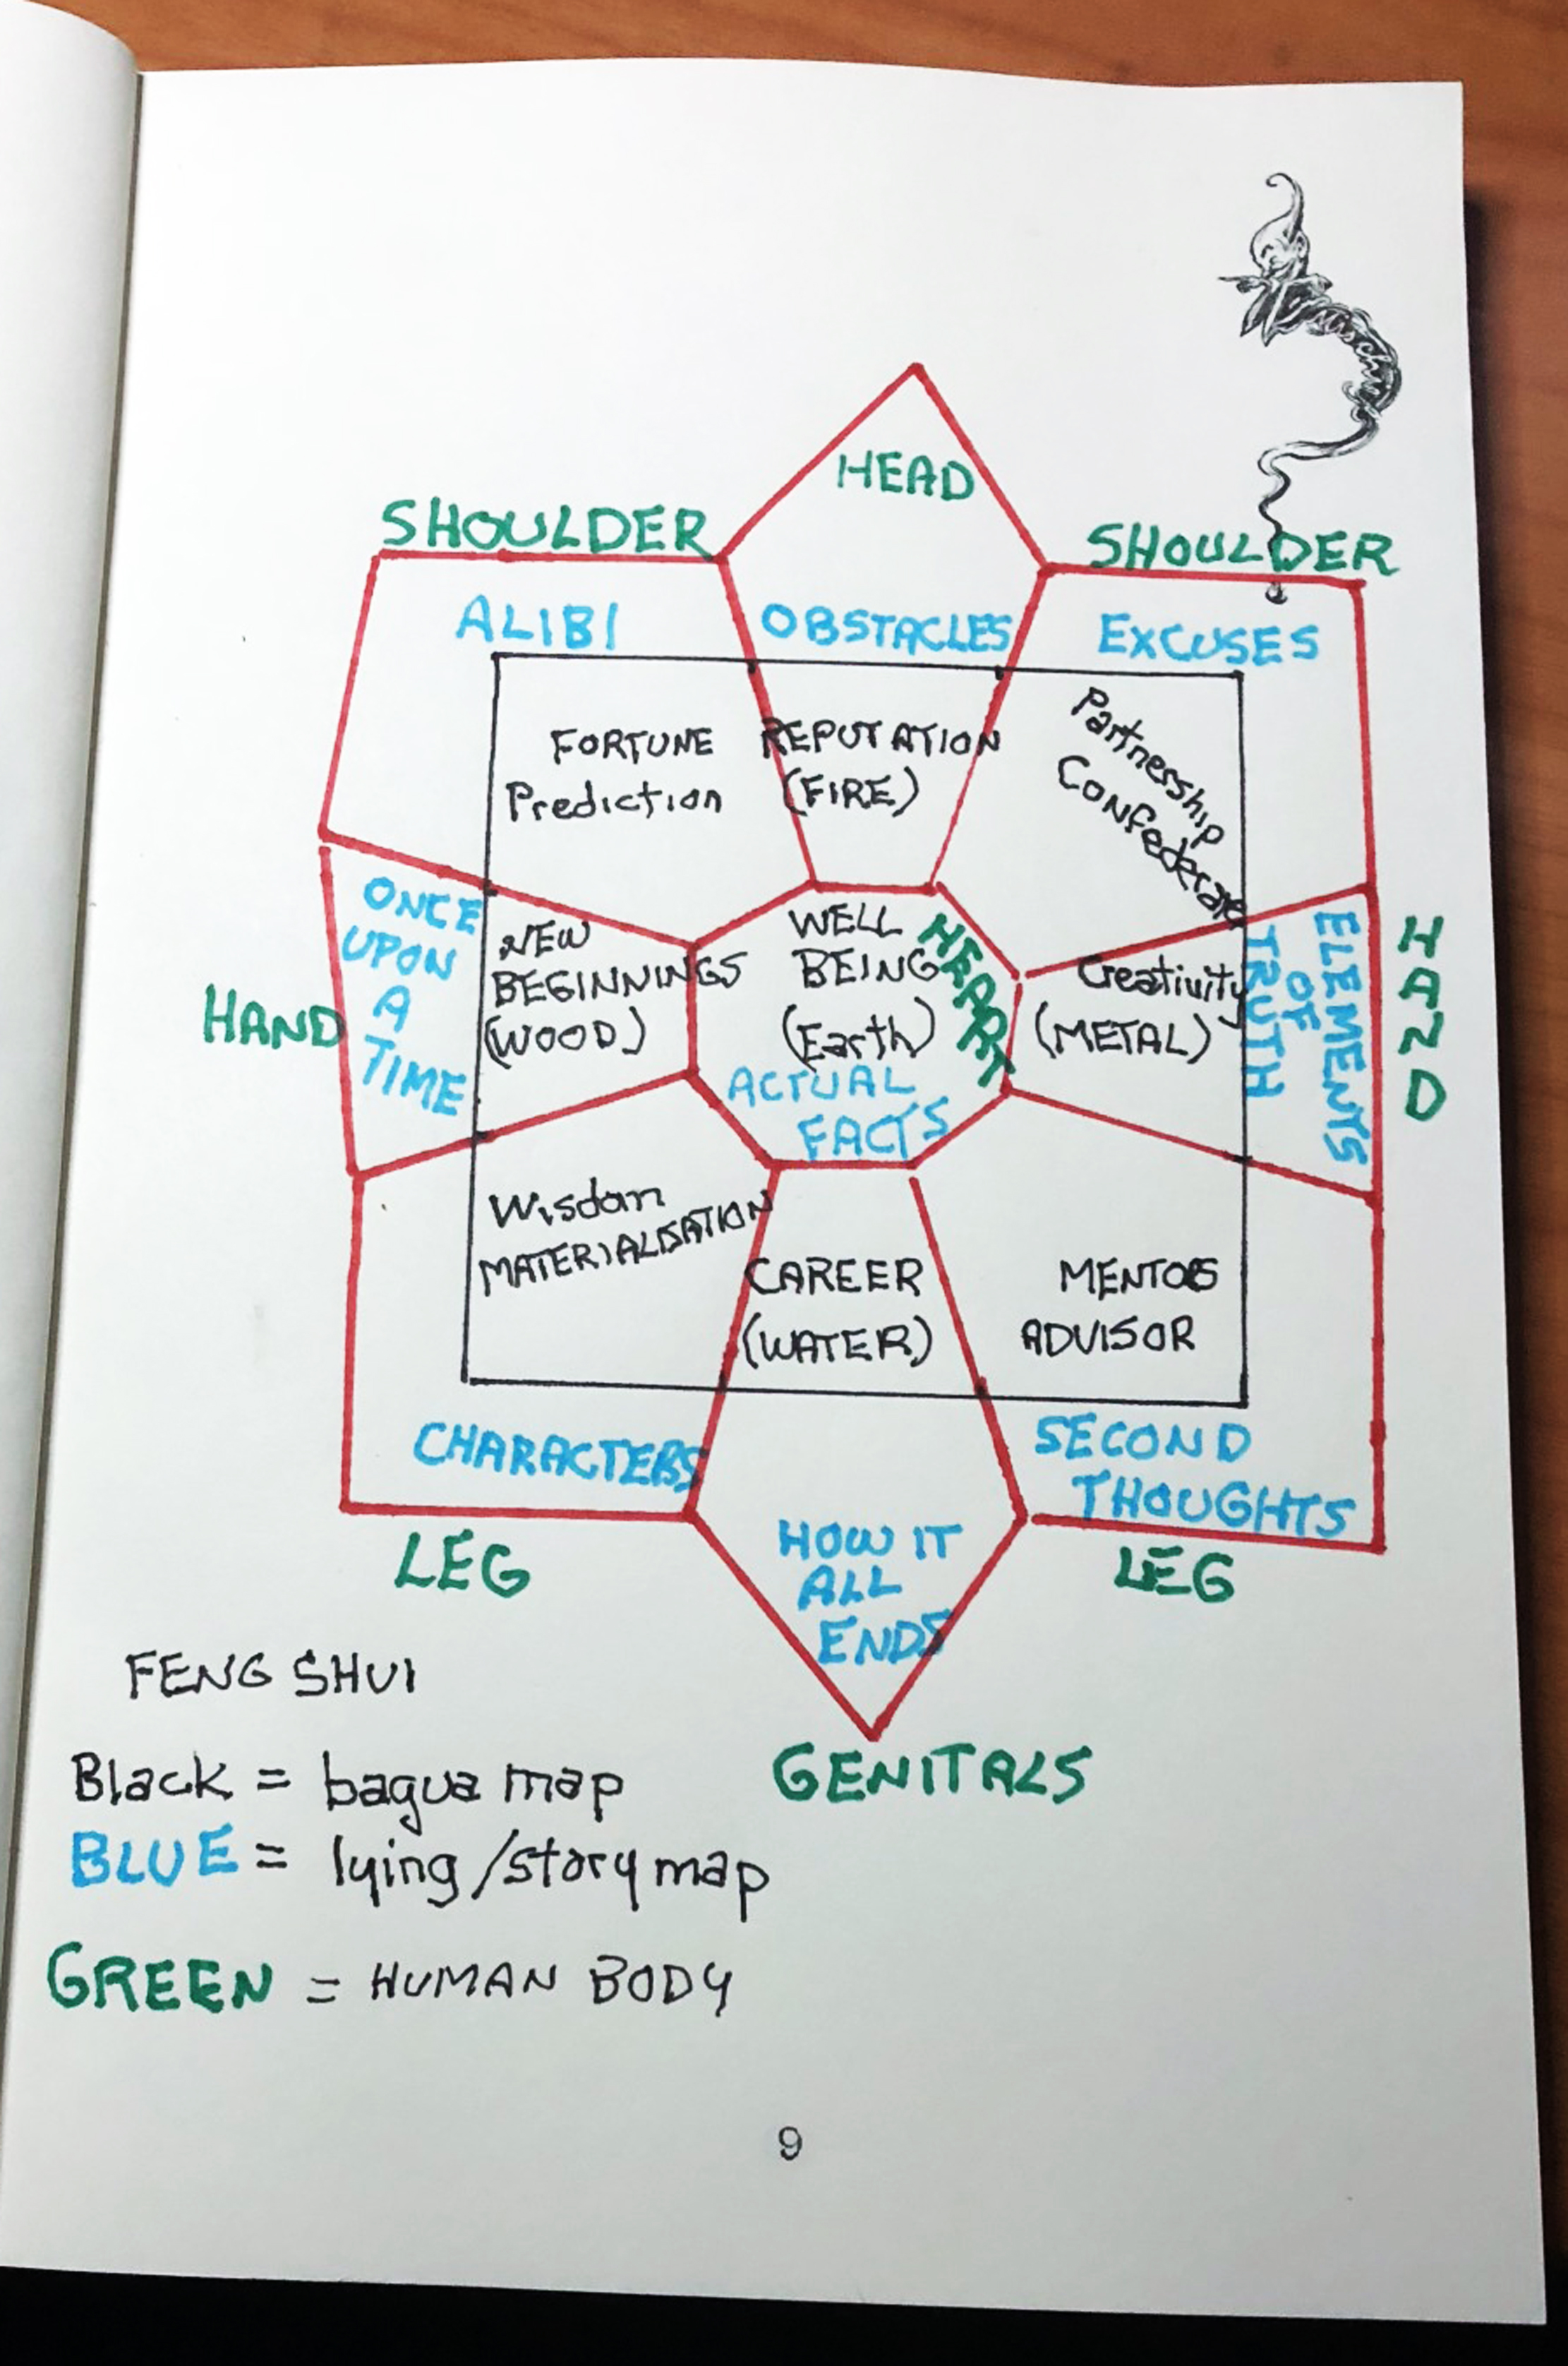 HEAD
SHOULDER
SHOULDER
ALIBI
OBSTACLES
EXCUSES
FORTUNE
Prediction
REPUTATION
(FIRE)
Partnership
Confederate
ONCE
UPON
A
TIME
HAND
NEW
BEGINNINGS
(WOOD)
WELL
BEING
(Earth)
HEART
ACTUAL
FACTS
Creativity
(METAL)
ELEMENTS
OF
TRUTH
HAND
Wisdom
MATERIALISATION
CAREER
(WATER)
MENTORS
ADVISOR
CHARACTERS
SECOND
THOUGHTS
HOW IT
ALL
ENDS
LEG
LEG
GENITALS
FENG SHUI
Black = bagua map
BLUE = lying/story map
GREEN = HUMAN BODY
9